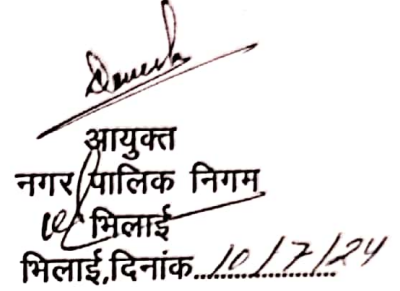 आयुक्त
नगर पालिक निगम
भिलाई
भिलाई,दिनांक....10/7/24